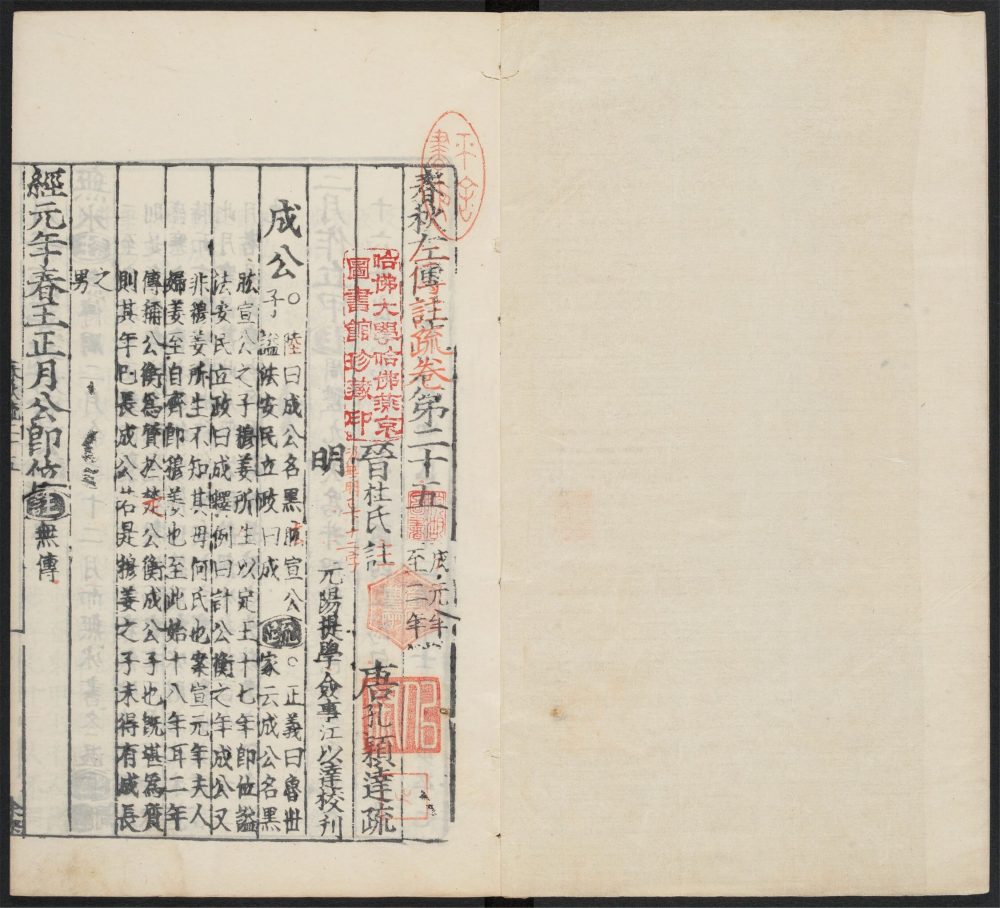 春秋左傳註疏卷第二十五 成元年至二年
晉杜氏註 唐孔穎達疏
明 元陽提學僉事江以達校刊
成公 ○陸曰成公名黑肱宣公子謚法安民立政曰成 疏 ○正義曰魯世家云成公名黑
肱宣公之子穆姜所生以定王十七年即位謚法安民立政曰成釋例曰計公衡之年成公又
非穆姜所生不知其母何氏也案宣元年夫人婦姜至自齊即穆姜也至此始十八年耳二年
傳稱公衡爲質於楚公衡成公子也旣堪爲質則其年已長成公若是穆姜之子未得有成長
之男
經元年春王正月公即位 無傳
哈佛大學哈佛燕京
圖書館珍藏印